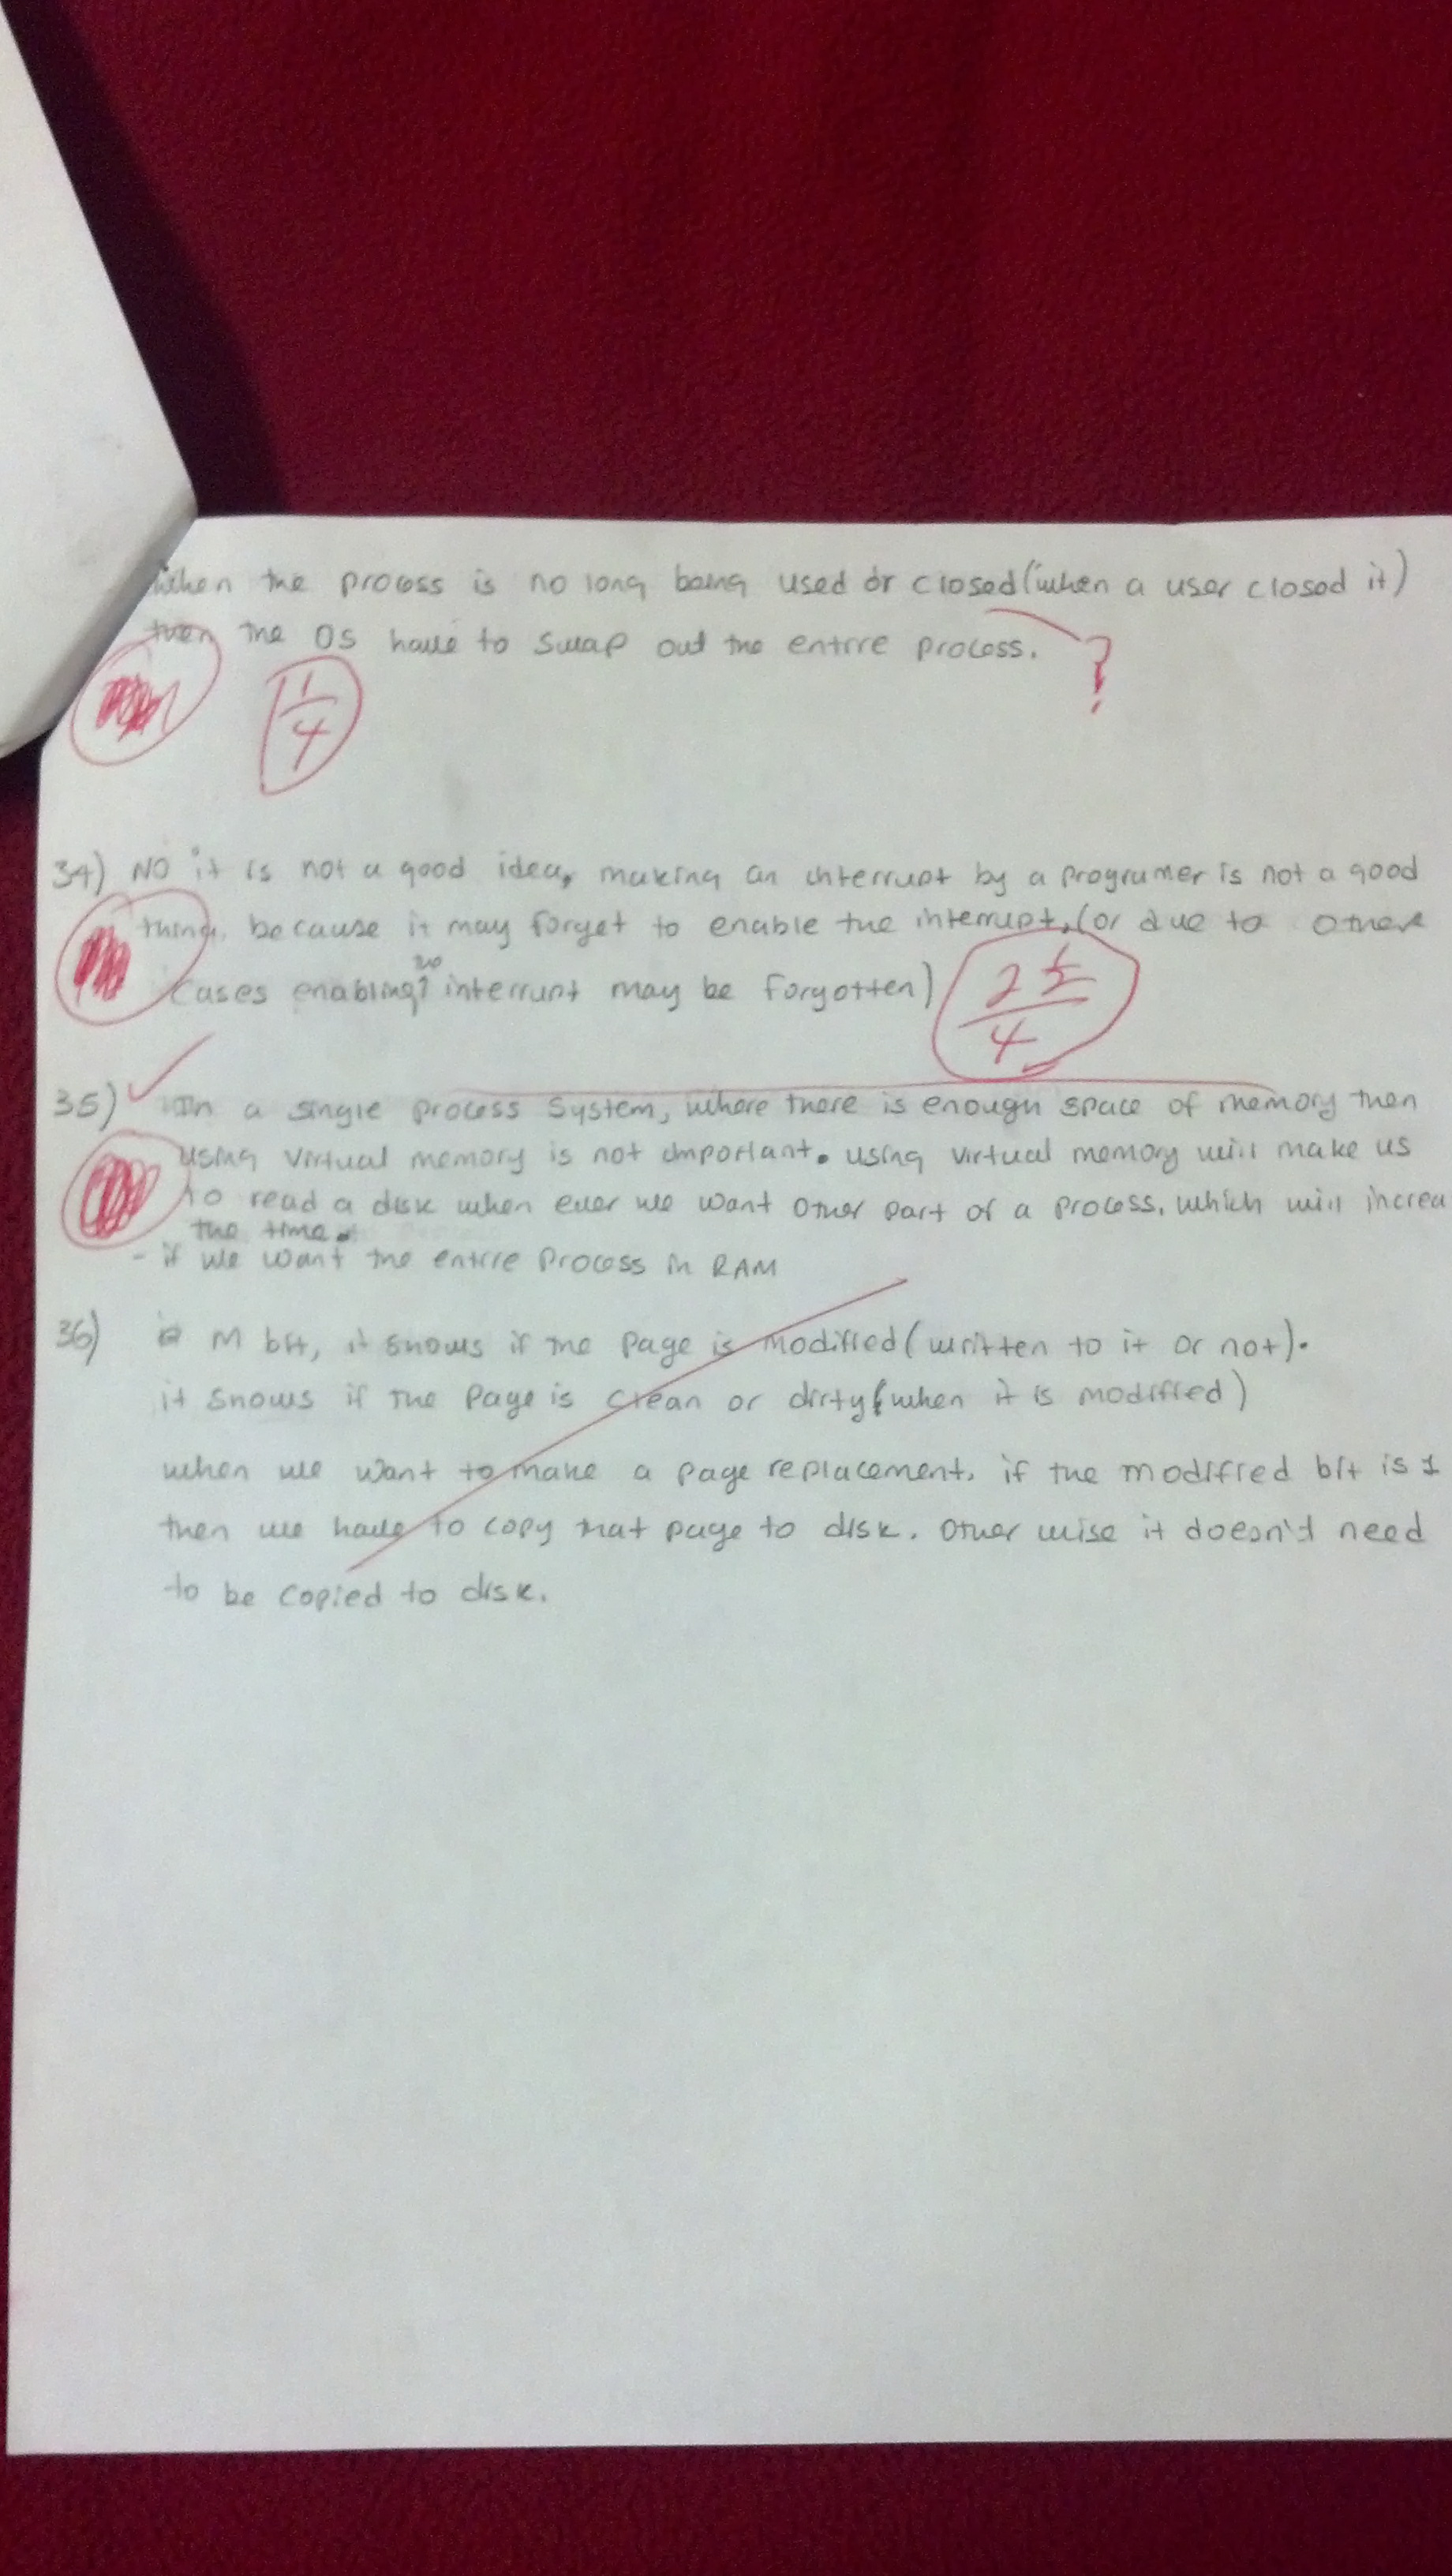 When the process is no long being used or closed (when a user closed it)
then the OS have to swap out the entire process.
?
1/4
34) NO it is not a good idea, making an interrupt by a programer is not a good
thing. because it may forget to enable the interrupt, (or due to other
cases enabling interrupt may be forgotten)
2 1/2 / 4
35) In a single process system, where there is enough space of memory then
using virtual memory is not important. using virtual memory will make us
to read a disk when ever we want other part of a process, which will increa
the time.
- if we want the entire process in RAM
36) M bit, it shows if the page is modified (written to it or not).
it shows if the page is clean or dirty (when it is modified)
when we want to make a page replacement. if the modified bit is 1
then we have to copy that page to disk. other wise it doesn't need
to be copied to disk.